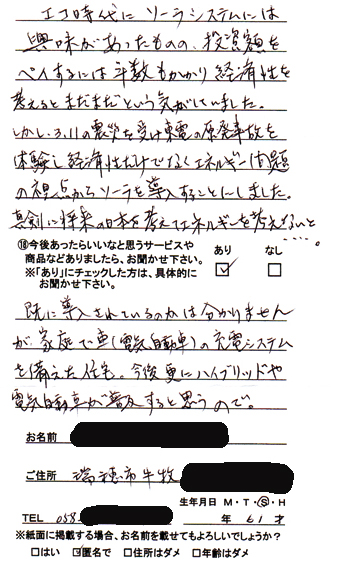 エコ時代にソーラシステムには
興味があったものの、投資額を
ペイするには年数もかかり経済性を
考えるとまだまだという気がしていました。
しかし、3.11の震災を受け東電の原発事故を
体験し経済性だけでなくエネルギー問題
の視点からソーラを導入することにしました。
真剣に将来の日本を考えてエネルギーを考えないと
・・・・。
⑱今後あったらいいなと思うサービスや
商品などありましたら、お聞かせ下さい。
※「あり」にチェックした方は、具体的に
お聞かせ下さい。
あり なし
既に導入されているのかは分かりません
が家庭で車(電気自動車)の充電システム
を備えた住宅。今後更にハイブリッドや
電気自動車が普及すると思うので。
お名前
ご住所 瑞穂市牛牧
生年月日 M・T・S・H
TEL 058- 年 61才
※紙面に掲載する場合、お名前を載せてもよろしいでしょうか?
□はい ☑匿名で □住所はダメ □年齢はダメ